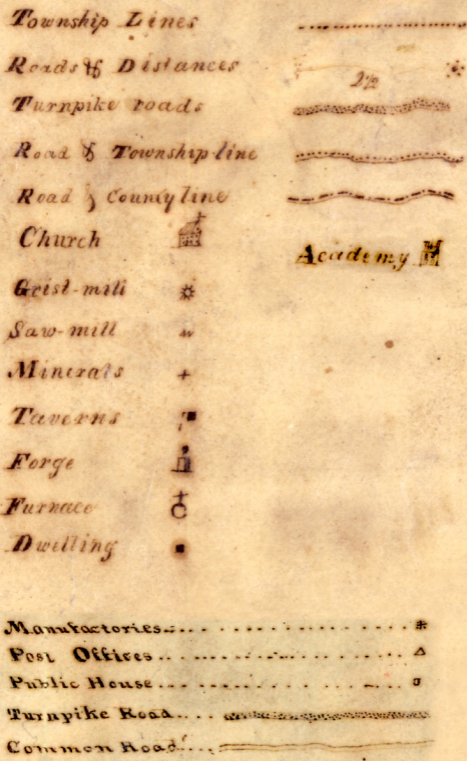 Township Lines
Roads & Distances 2 1/2
Turnpike roads
Road & Township line
Road & County line
Church
Academy
Grist-mill
Saw-mill
Minerals
Taverns
Forge
Furnace
Dwelling
Manufactories
Post Offices
Public House
Turnpike Road
Common Road